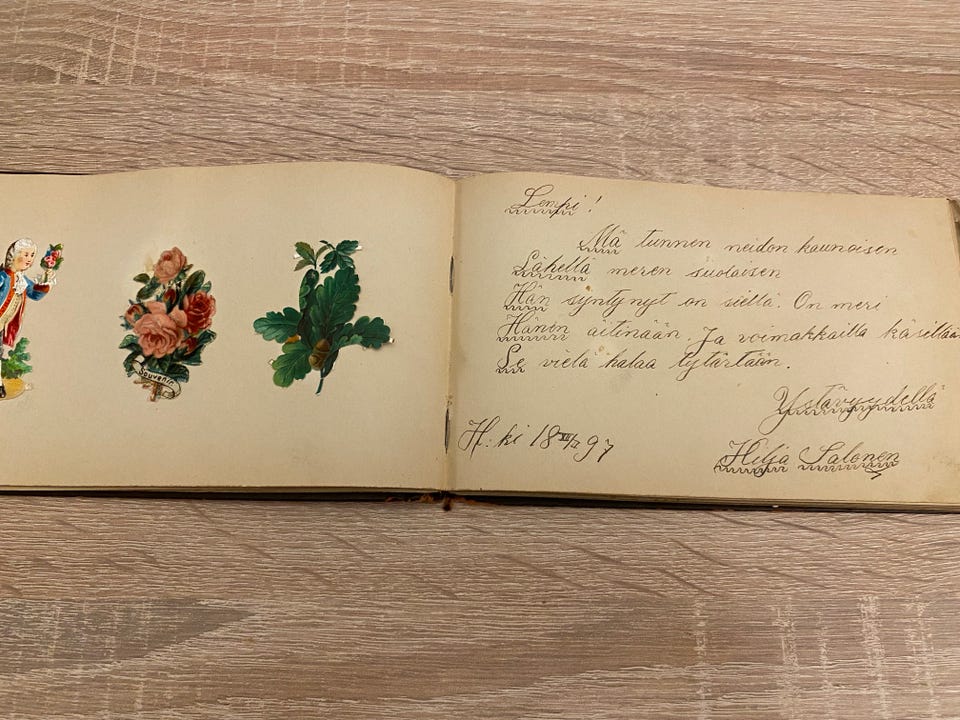 Souvenir
Lempi!
Mä tunnen neidon kaunoisen
Lähellä meren suolaisen
Hän syntynyt on siellä. On meri
Hänen äitinään. Ja voimakkailla käsillään
Se vielä halaa tytärtään.
Ystävyydellä
H:ki 18 97
Hilja Salonen